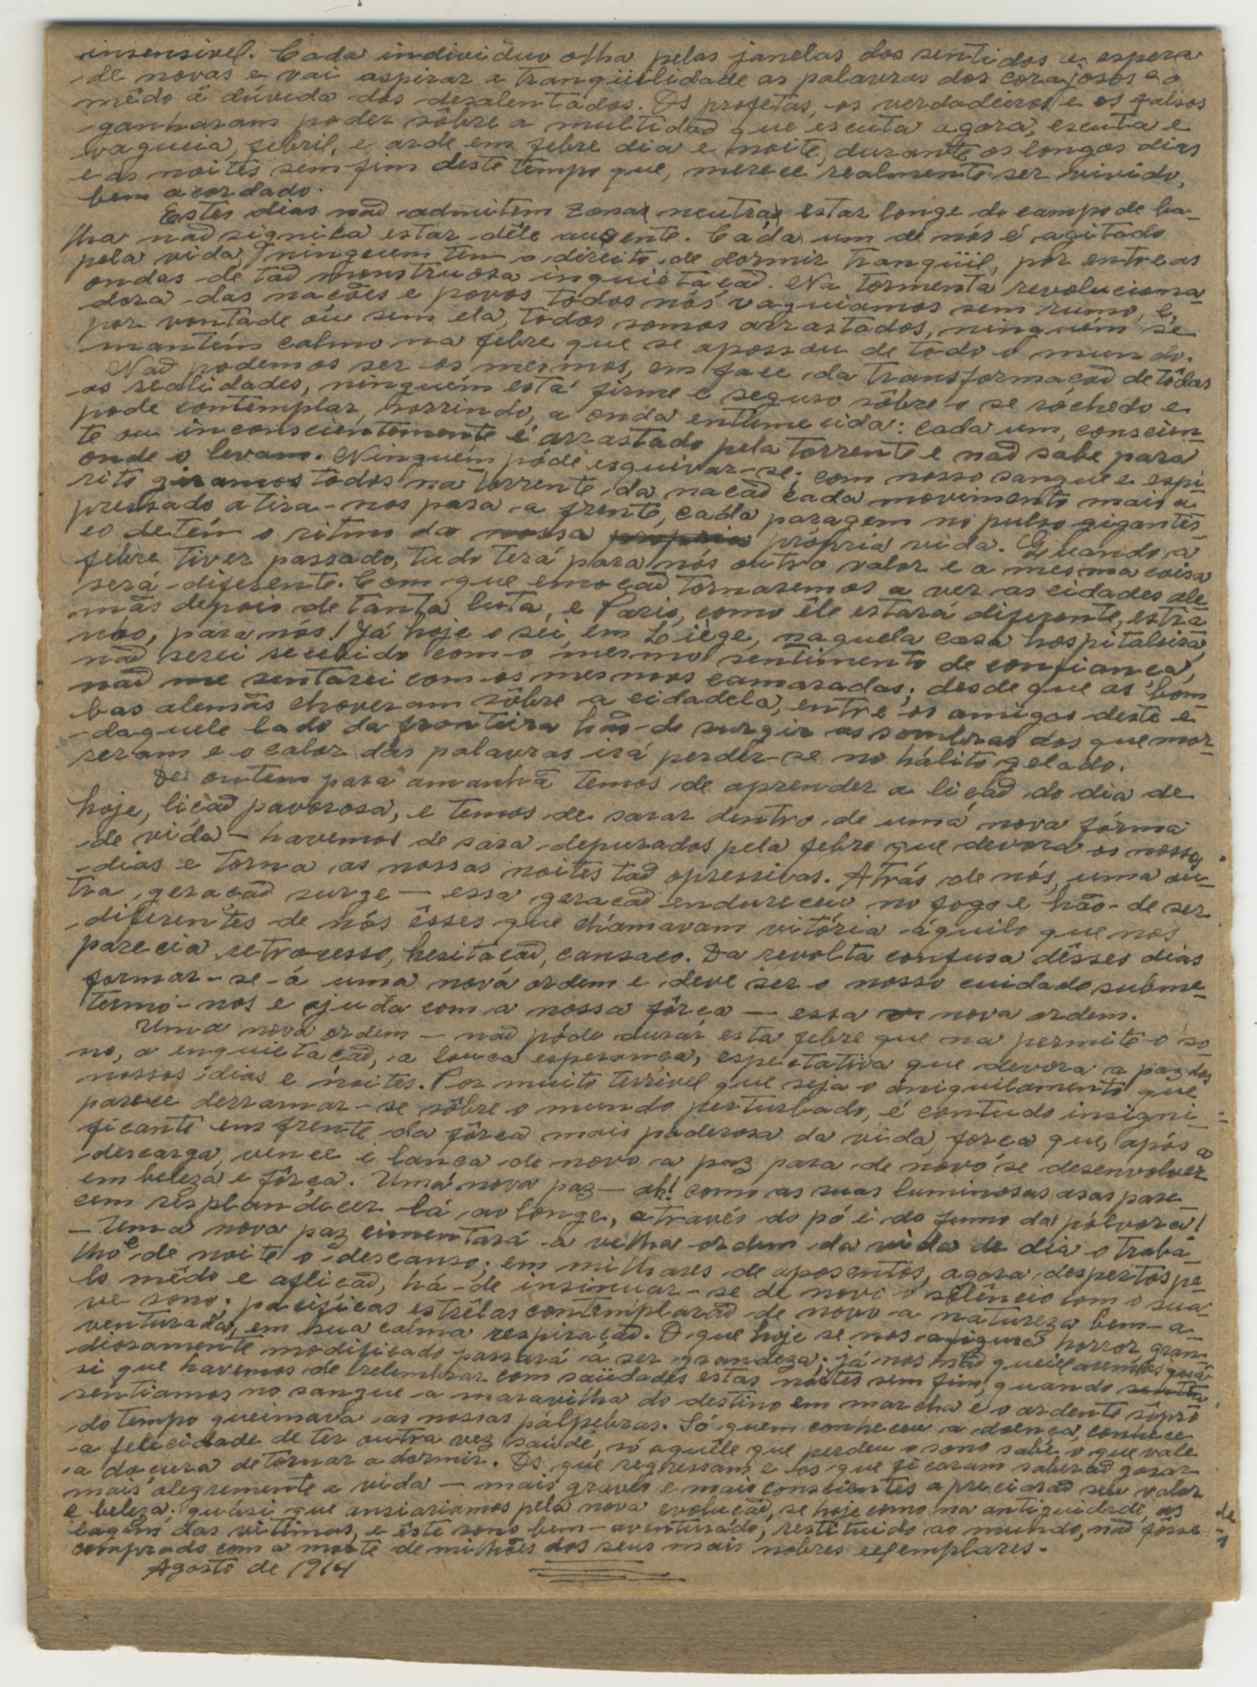 insensivel. Cada individuo olha pelas janelas dos sentidos e espera
de novas e vai aspirar a tranqüilidade as palavras dos corajosos e o
mêdo á dúvida dos desalentados. Os profetas, os verdadeiros e os falsos
ganharam poder sôbre a multidaõ que escuta agora, escuta e
vagueia, febril, e arde em febre dia e noite, durante os longos dias
e as noites sem fim deste tempo que, merece realmente ser vivido,
bem acordado.
Estes dias naõ admitem zonas neutras estar longe do campo de ba-
lha naõ signica estar dêle ausente. Cada um de nós é agitado
pela vida, ninguem tem o direito de dormir tranqüil, por entre as
ondas de taõ monstruosa inquietaçaõ. Na tormenta revoluciona-
dora das nações e povos todos nós vaguiamos sem rumo, e,
por vontade ou sem ela, todos somos arrastados, ninguem se
mantém calmo na febre que se apossou de todo o mundo.
Naõ podemos ser os mesmos, em face da transformaçaõ de tôdas
as realidades, ninguém está firme e seguro sôbre o se róchedo e
pode contemplar, sorrindo, a onda entumecida: cada um, conscien-
te ou inconscientemente é arrastado pela torrente e naõ sabe para
onde o levam. Ninguém póde esquivar-se; com nosso sangue e espi-
rito giramos todos na torrente da naçaõ cada movimento mais a-
pressado atira-nos para a frente, cada paragem no pulso gigantes-
co detém o ritmo da nossa propria vida. Quando a
febre tiver passado, tudo terá para nós outro valor e a mesma coisa
será diferente. Com que emoçaõ tornaremos a ver as cidades ale-
mãs depois de tanta luta, e Paris, como ele estará diferente, estra-
nho, para nós! Já hoje o sei, em Liège, naquela casa hospitaleira,
naõ serei recebido com o mesmo sentimento de confiança,
naõ me sentarei com os mesmos camaradas; desde que as bom-
bas alemãs choveram sôbre a cidadela, entre os amigos deste e
daquele lado da fronteira hão-de surgir as sombras dos que mor-
reram e o calor das palavras irá perder-se no hálito gelado.
De ontem para amanhã temos de aprender a liçaõ do dia de
hoje, liçaõ pavorosa, e temos de sarar dentro de uma nova fórma
de vida - havemos de sara depurados pela febre que devora os nossos
dias e torna as nossas noites taõ opressivas. Atrás de nós, uma ou-
tra geraçaõ surge — essa geraçaõ endureceu no fogo e hão-de ser
diferentes de nós êsses que chamavam vitória áquilo que nos
parecia retrocesso, hesitaçaõ, cansaço. Da revolta confusa dêsses dias
formar-se-á uma nová ordem e deve ser o nosso cuidado subme-
termo-nos e ajuda com a nossa fôrça — essa nova ordem.
Uma nova ordem — naõ póde durar esta febre que na permite o so-
no, a enquietaçaõ, a louca esperança, espectativa que devora a paz dos
nossos dias e noites. Por muito terrivel que seja o aniquilamento que
parece derramar-se sôbre o mundo perturbado, é contudo insigni-
ficante em frente da fôrça mais poderosa da vida, força que, após a
descarga, vence e lança de novo a paz para de novo se desenvolver
em beleza e fôrça. Uma nova paz — ah! como as suas luminosas asas pare-
cem resplandecer lá ao longe, através do pó e do fumo da pólvora!
- Uma nova paz cimentará a velha ordem da vida de dia o traba-
lho e de noite o descanso; em milhares de aposentos, agora despertos pe-
lo mêdo e afliçaõ, há-de insinuar-se de novo o silêncio com o sua-
ve sono; pacificas estrelas contemplaraõ de novo a natureza bem-a-
venturada, em sua calma respiraçaõ. O que hoje se nos afigura horror gran-
diosamente modificado passará á ser grandeza; já nos naõ queixaremos quá-
si que havemos de relembrar com saüdades estas noites sem fim, quando
sentiamos no sangue a maravilha do destino em marcha e o ardente sôpro
do tempo queimava as nossas pálpebras. Só quem conheceu a doença, conhece
a felicidade de ter outra vez saúde, só aquêle que perdeu o sono sabe o que vale
a doçura de tornar a dormir. Os que regressam e os que ficaram saberaõ gozar
mais alegremente a vida — mais graves e mais conscientes apreciaraõ seu valor
e beleza: quási que ansiariamos pela nova evoluçaõ, se hoje como na antiguidade, os
lagem das vitimas, e êste sono bem-aventurado, restituido ao mundo, naõ fôsse
comprado com a morte de milhões dos seus mais nobres exemplares.
Agosto de 1914